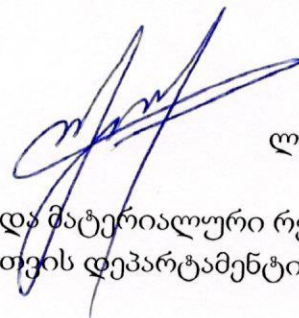 ლ
და მატერიალური რე
თვის დეპარტამენტი